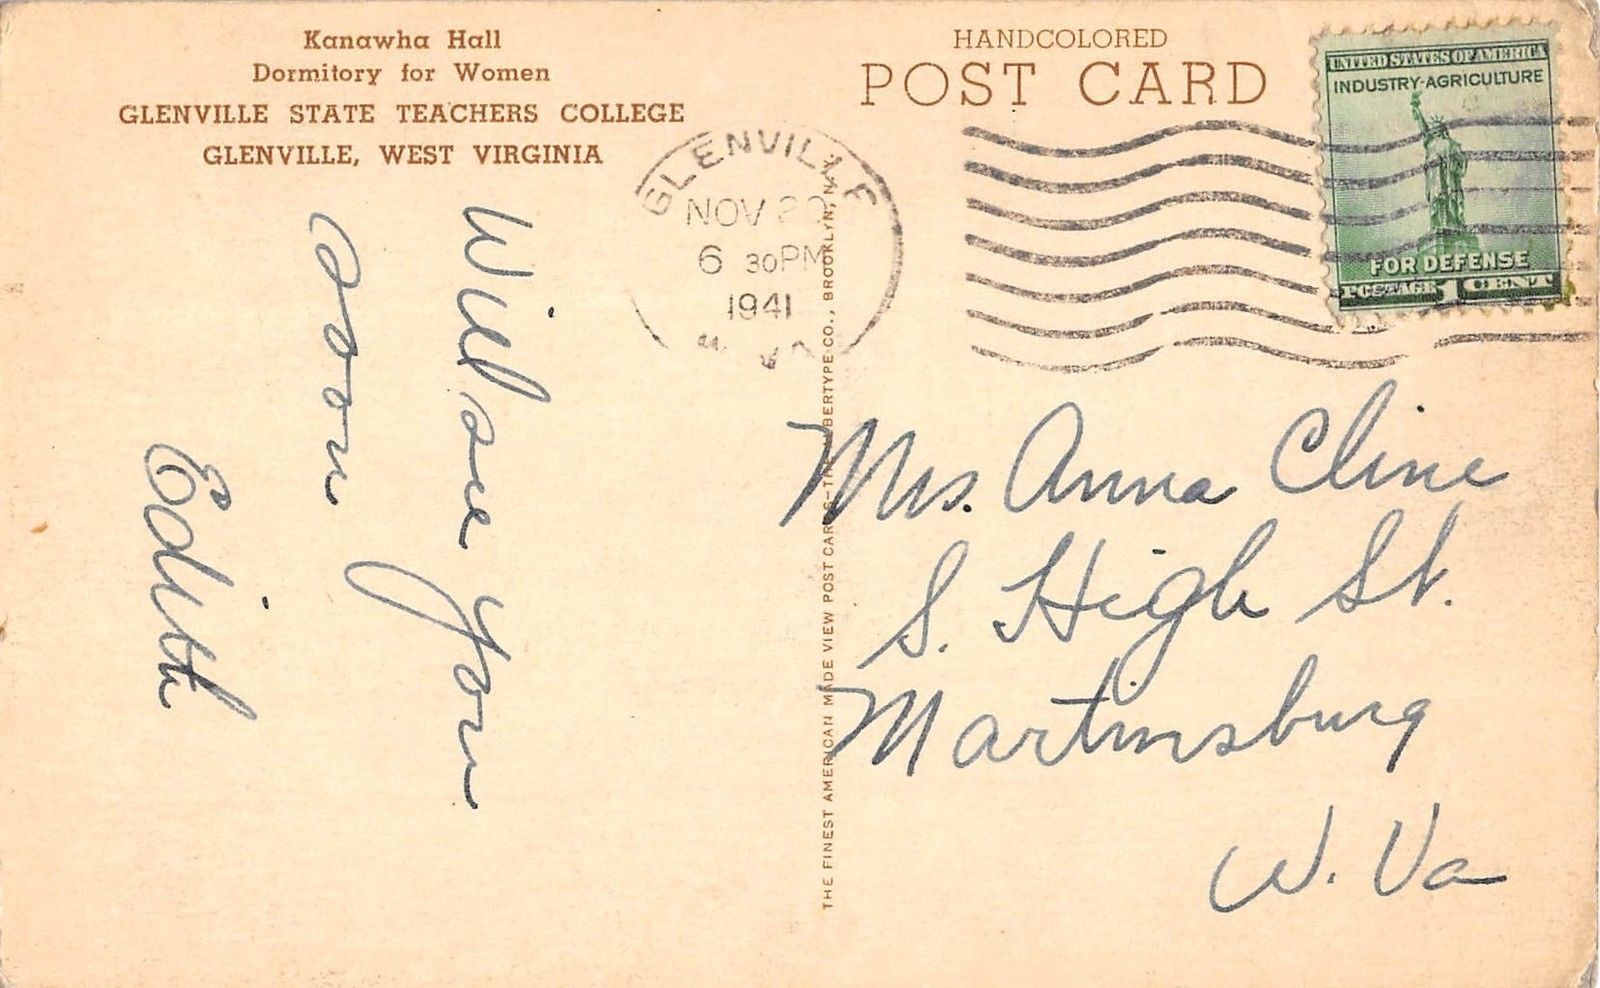 Kanawha Hall
Dormitory for Women
GLENVILLE STATE TEACHERS COLLEGE
GLENVILLE, WEST VIRGINIA
Will see you
soon
Edith
HANDCOLORED
POST CARD
GLENVILLE
NOV 20
6 30PM
1941
W. VA.
UNITED STATES OF AMERICA
INDUSTRY-AGRICULTURE
FOR DEFENSE
POSTAGE 1 CENT
THE FINEST AMERICAN MADE VIEW POST CARDS-THE ALBERTYPE CO., BROOKLYN, N.Y.
Mrs. Anna Cline
S. High St.
Martinsburg
W. Va